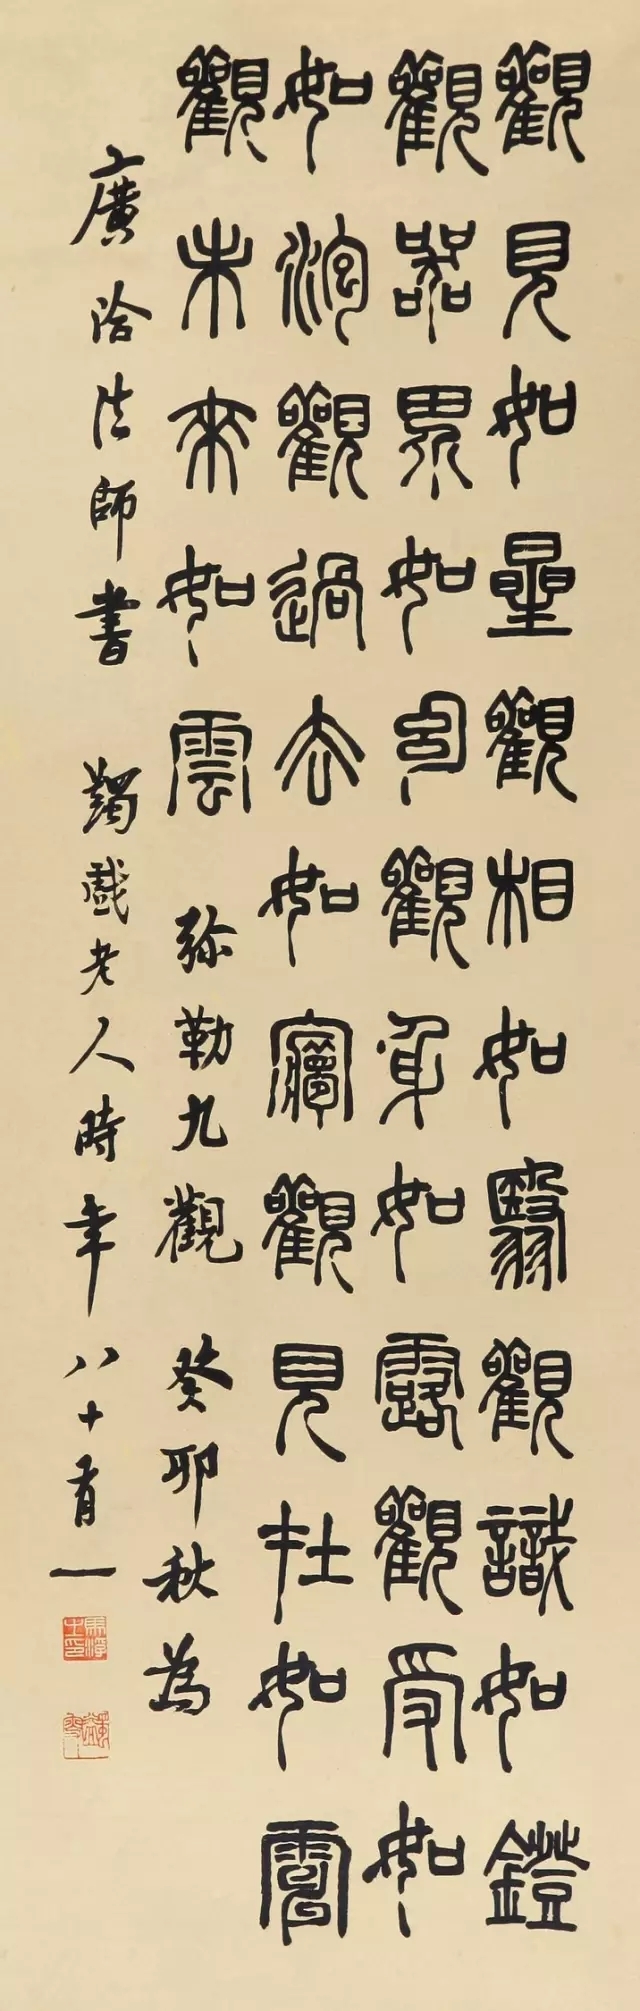 觀見如星觀相如翳觀識如鐙
觀器界如幻觀身如露觀受如
如泡觀過去如夢觀見在如電
觀未來如雲 弥勒九觀 癸卯秋為
廣洽法師書 蠲戲老人時年八十有一
馬浮之印
蠲叟